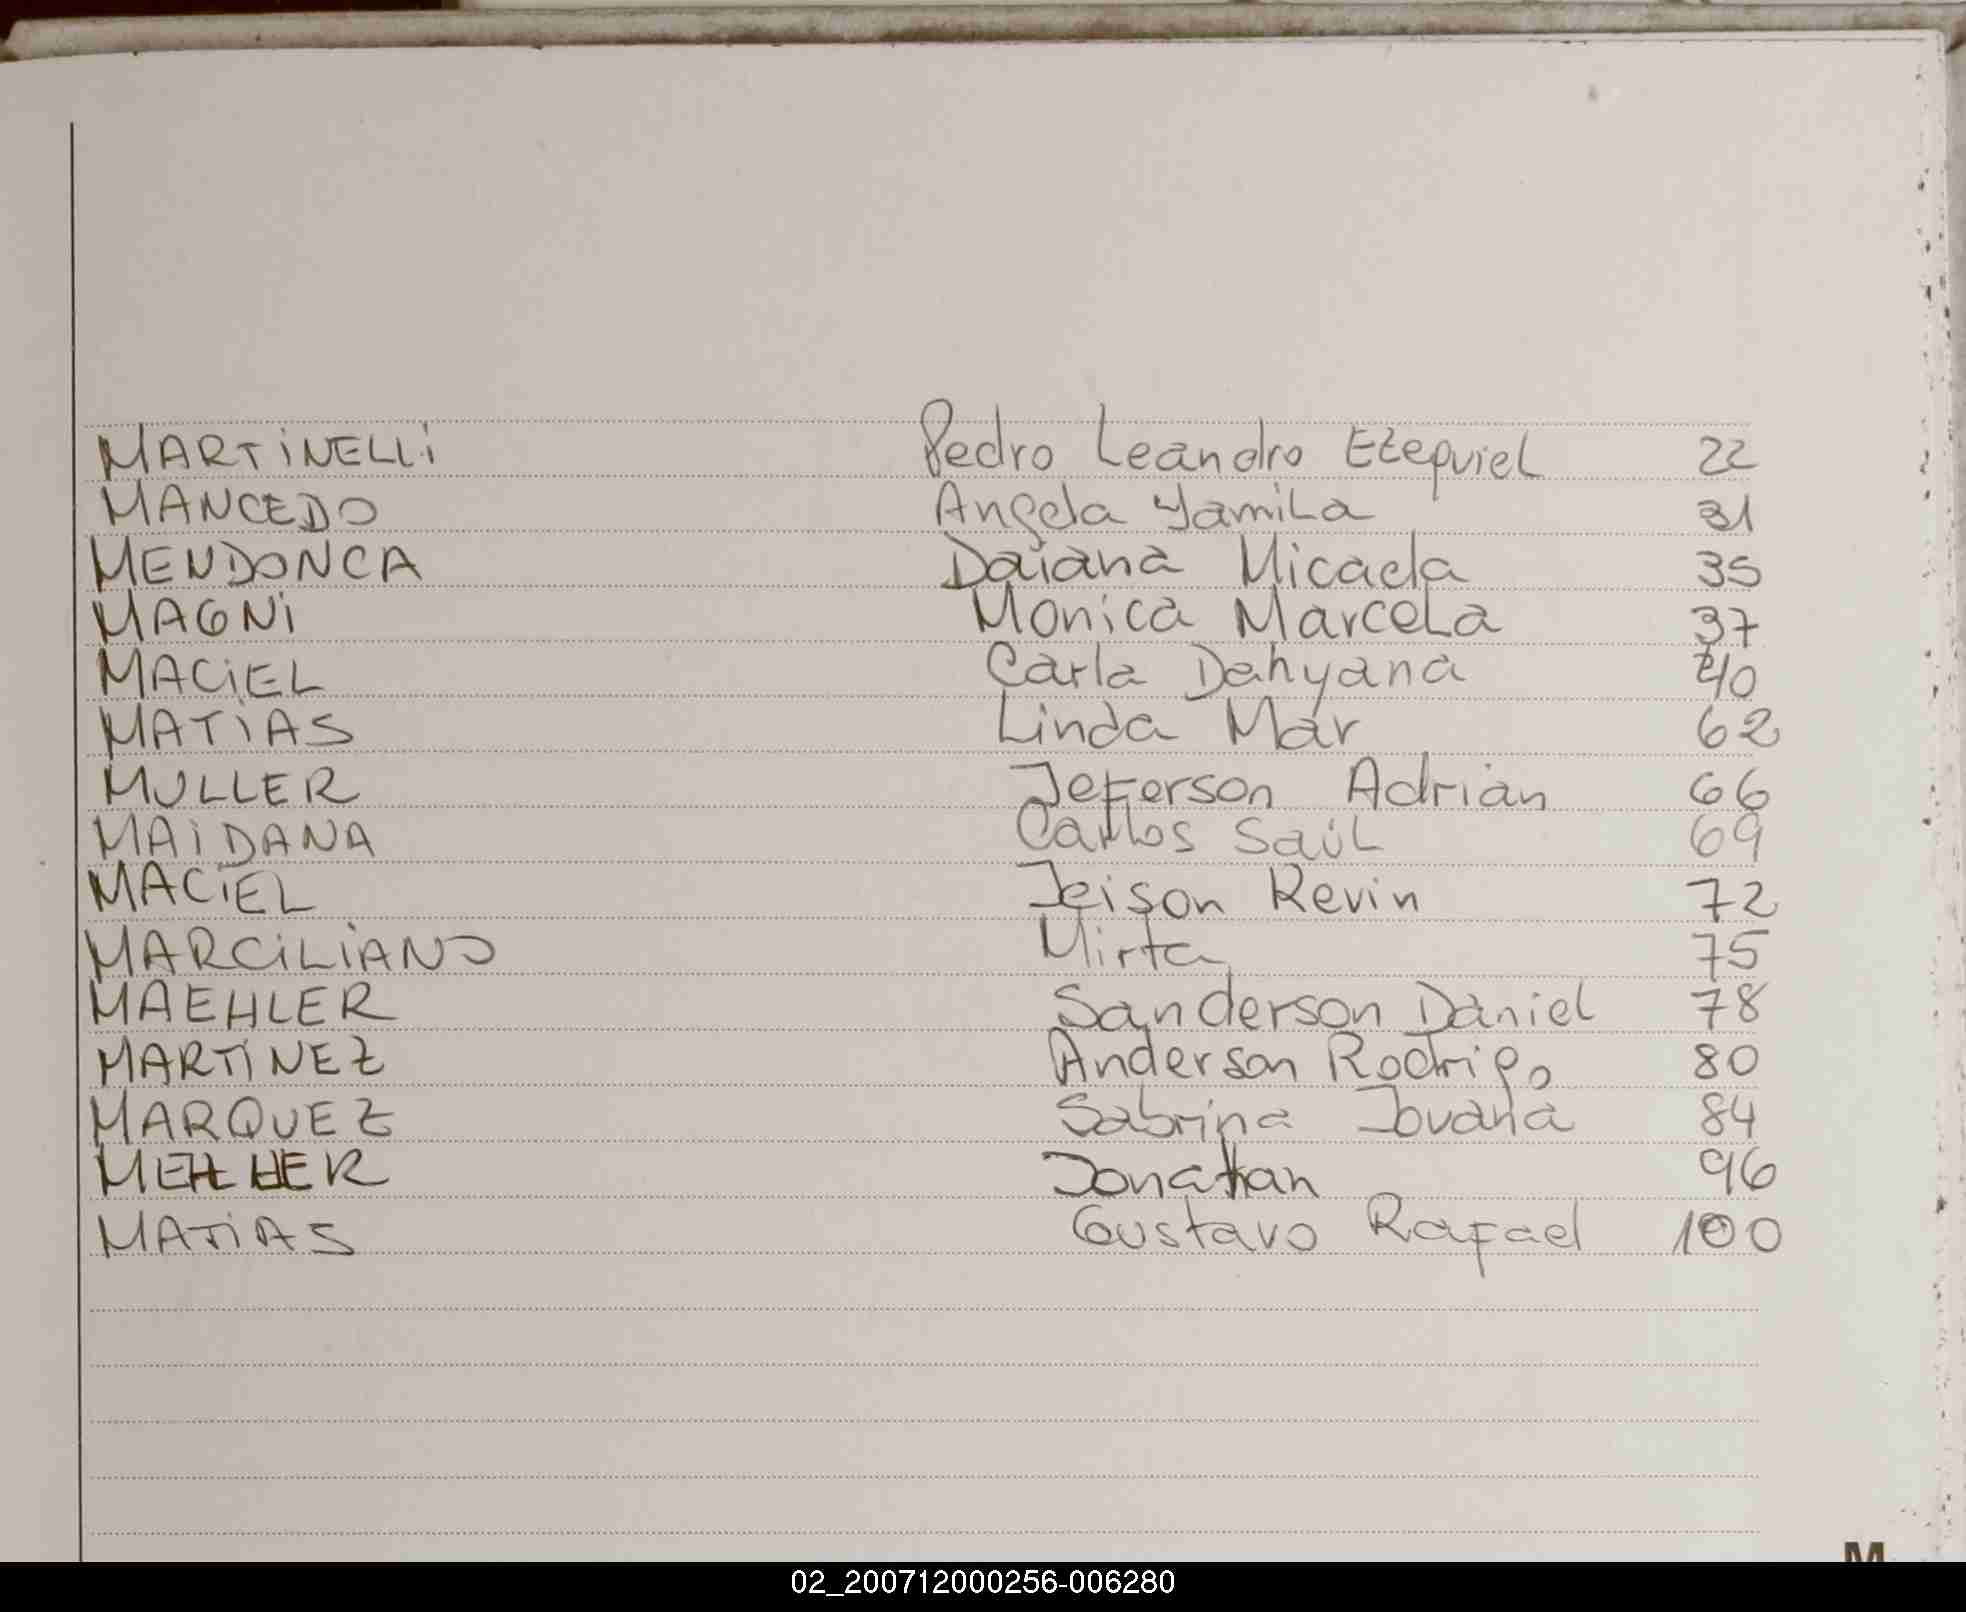 MARTiNELLi Pedro Leandro Ezequiel 22
MANCEDO Angela Yamila 31
MENDONCA Daiana Micaela 35
MAGNi Monica Marcela 37
MACiEL Carla Dahyana 40
MATiAS Linda Mar 62
MULLER Jeferson Adrian 66
MAiDANA Carlos Saúl 69
MACiEL Jeison Kevin 72
MARCiLiANO Mirta 75
MAEHLER Sanderson Daniel 78
MARTiNEZ Anderson Rodrigo 80
MARQUEZ Sabrina Jovana 84
Jonathan 96
MATiAS Gustavo Rafael 100
M
02_200712000256-006280